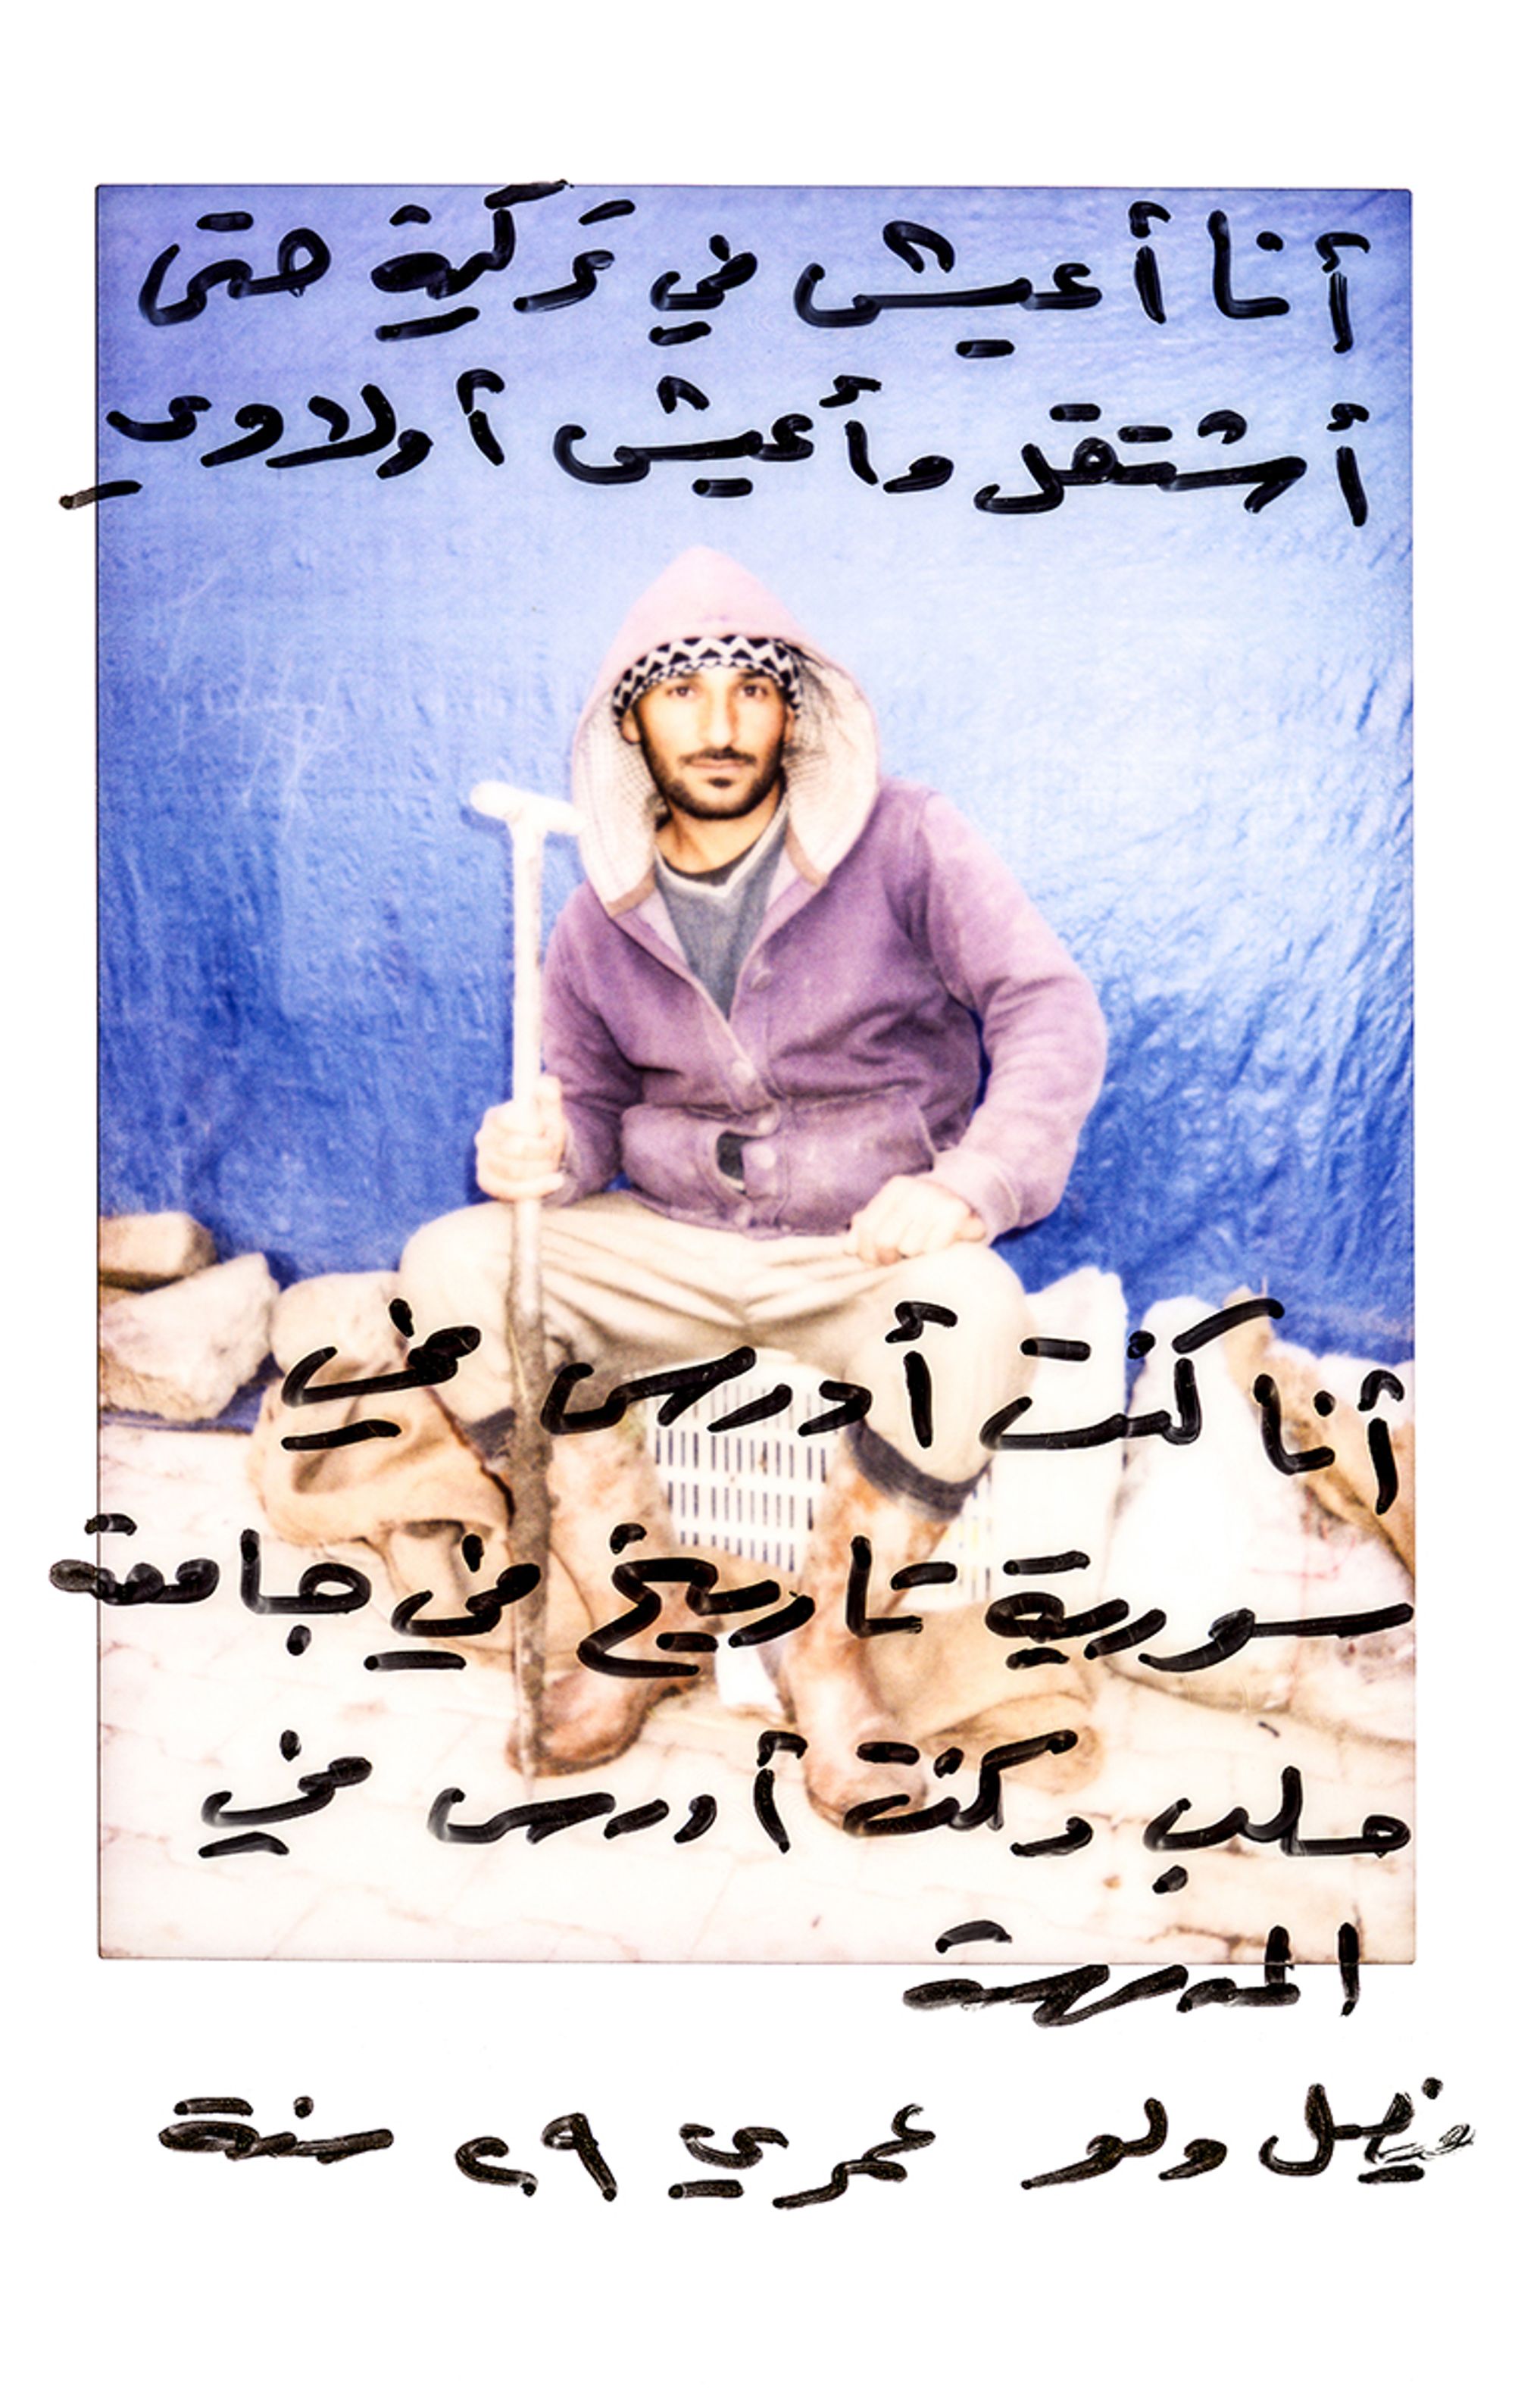 أنا أعيش في تركية حتى
أشتقل وأعيش أولادي
أنا كنت أدرس في
سورية تاريخ في جامعة
حلب وكنت أدرس في
المدرسة
عمري ٢٩ سنة